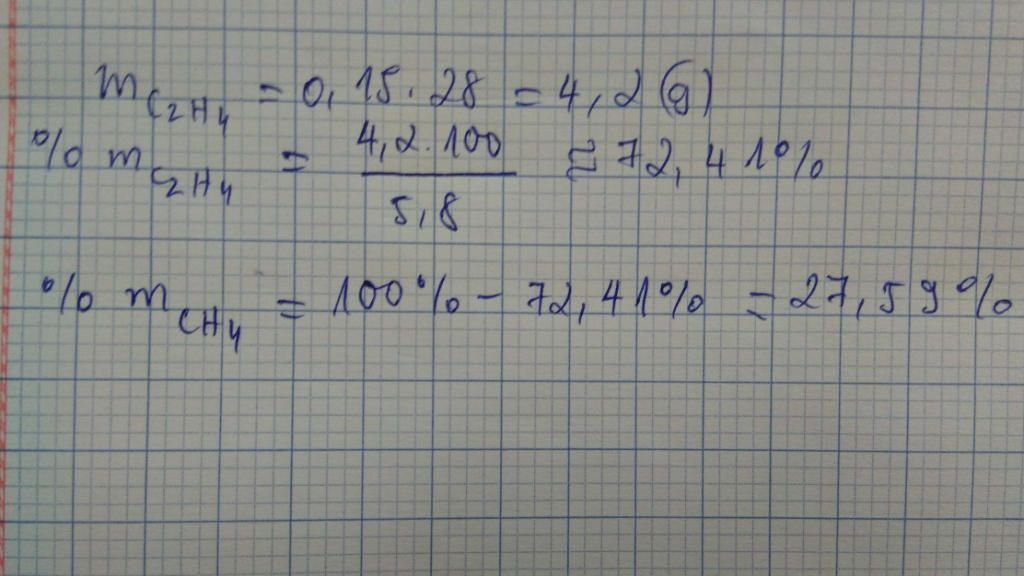 m C₂H₄ = 0,15.28 = 4,2 (g)
% m C₂H₄ = 4,2.100 / 5,8 ≈ 72,41%
% m CH₄ = 100% - 72,41% = 27,59%